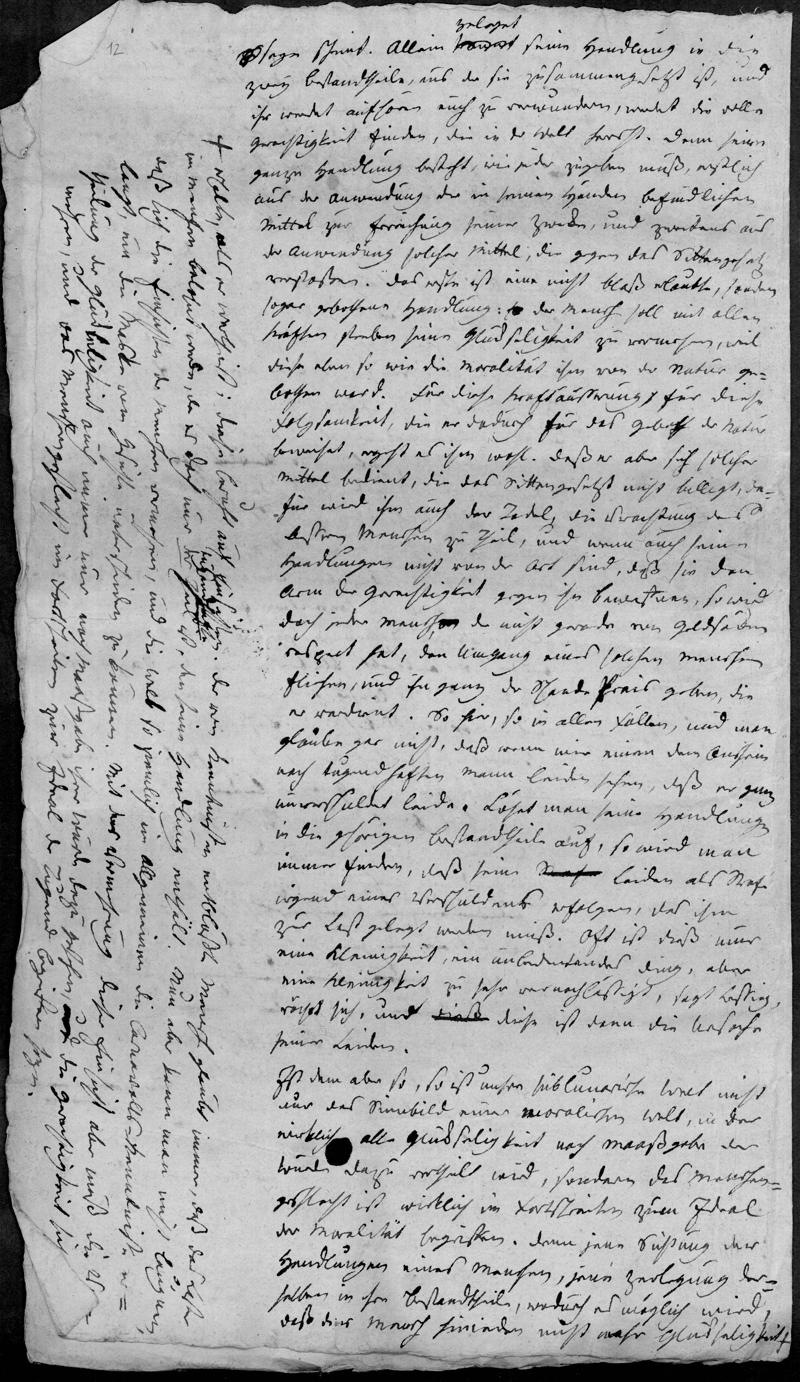 12
zerleget
sagen scheint. Allein seine Handlung in die
zwey bestandtheile, aus der sie zusammengesetzt ist, und
ihr werdet aufhören euch zu verwundern, werdet die volle
gerechtigkeit finden, die in der Welt herrscht. Denn seine
ganze Handlung besteht, wie jeder zugeben muß, erstlich
aus der anwendung der in seinen Händen befindlichen
Mittel zur Erreichung seiner Zwecke, und zweitens aus
der Anwendung solcher Mittel, die gegen das Sittengesetz
verstoßen. Das erste ist eine nicht bloß erlaubte, sondern
sogar gebothene Handlung: der Mensch soll mit allen
Kräften streben seine Glückseligkeit zu vermehren, weil
diese eben so wie die Moralität ihm von der Natur ge=
bothen ward. Für diese Kraftäusserung, für diese
Folgsamkeit, die er dadurch für das geboth der Natur
beweiset, geht es ihm wohl. Daß er aber sich solcher
Mittel bedient, die das Sittengesetzt nicht billigt, da=
für wird ihm auch der Tadel, die Verachtung des
bessern Menschen zu Theil, und wenn auch seine
Handlungen nicht von der Art sind, daß sie den
Arm der Gerechtigkeit gegen ihn bewaffnen, so wird
doch jeder Mensch, der nicht gerade vor Goldsäcken
respect hat, den Umgang eines solchen Menschen
fliehen, und ihn ganz der Schande Preis geben, die
er verdient. So hier, so in allen Fällen, und man
glaube gar nicht, daß wenn wir einen dem Anschein
nach tugendhaften Mann leiden sehen, daß er ganz
unverschuldet leide. Löset man seine Handlungen
in die gehörigen bestandtheile auf, so wird man
immer finden, daß seine Leiden als Strafe
irgend eines Verschuldens erfolgen, das ihm
zur Last gelegt werden muß. Oft ist dieß nur
eine Kleinigkeit, ein unbedeutendes Ding, aber
eine Kleinigkeit zu sehr vernachlässigt, sagt Lessing,
rächet sich, und diese ist dann die Ursache
seiner Leiden.
Ist dem aber so, so ist unsere sublunarische Welt nicht
nur das Sinnbild einer moralischen Welt, in der
wirklich alle Glückseligkeit nach Maaßgabe der
Würde dazu vertheilt wird, sondern das Menschen=
geschlecht ist wirklich im Fortschreiten zum Ideal
der Moralität begriffen. Denn jene Sichtung der
Handlungen eines Menschen, jene Zerlegung der=
selben in ihre Bestandtheile, wodurch es möglich wird,
daß der Mensch hinieden nicht mehr Glückseligkeit
+ erhalte, als er verdient; diese beruht auf
Einsichten. Der von Kenntnissen entblößte Mensch glaubt immer, daß das Laster
im Menschen belohnt werde, da es doch nur Theil ist, den seine Handlung enthält. Nun aber kann man nicht läugnen,
daß sich die Einsichten der Menschen vermehren, und die Welt so ziemlich im Allgemeinen die Kenntnisse er=
langt, um die Maske vom Gesichte unterscheiden zu können. Mit der Vermehrung dieser Einsicht aber muß die Ver=
theilung der Glückseligkeit auch immer mehr nach Maaßgabe ihrer Würde dazu geschehen, die Gerechtigkeit sich
mehren, und das Menschengeschlecht im Fortschreiten zum Ideal der Tugend begriffen seyn.